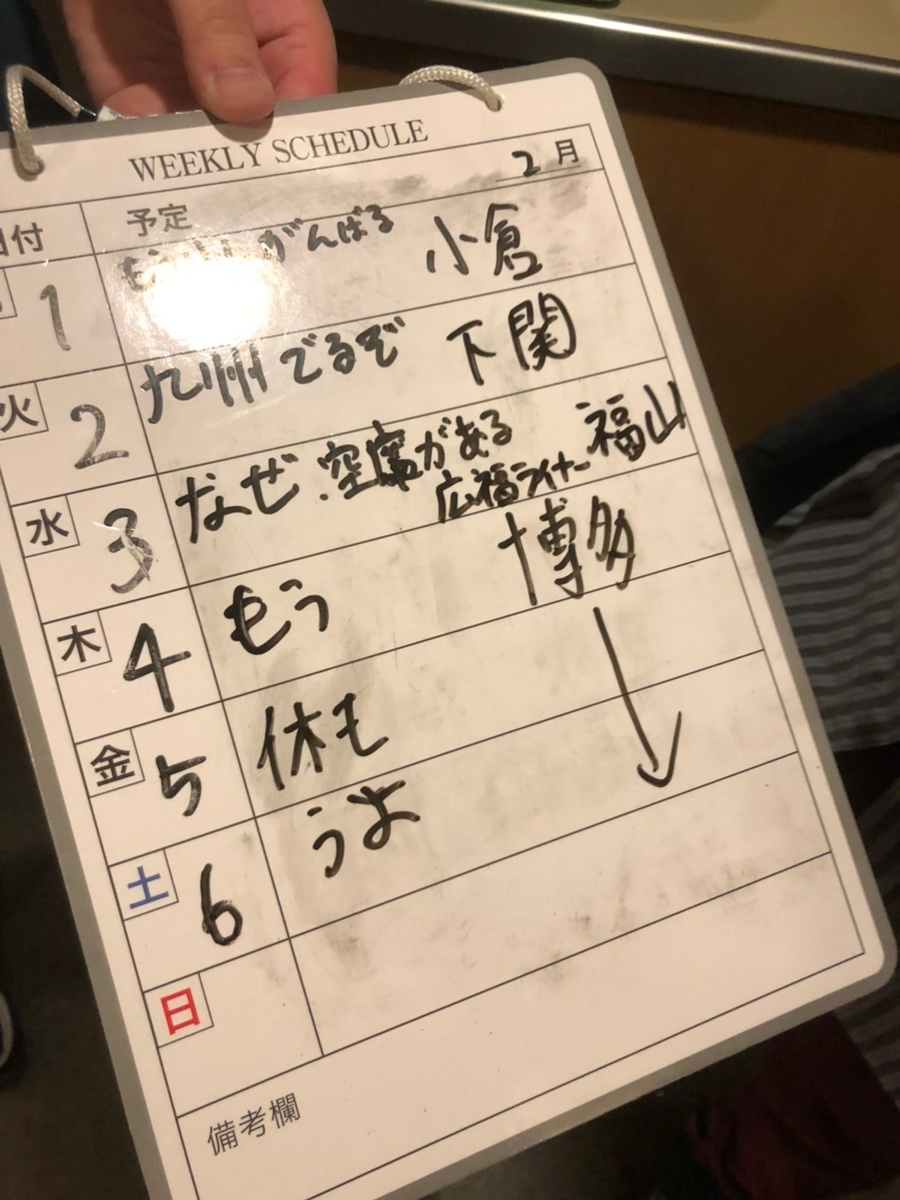 WEEKLY SCHEDULE
2月
付 予定
1 がんばる 小倉
火 2 九州でるぞ 下関
水 3 なぜ空席がある 福山
広福ライナー
木 4 もう 博多
金 5 休も
土 6 うよ
日
備考欄